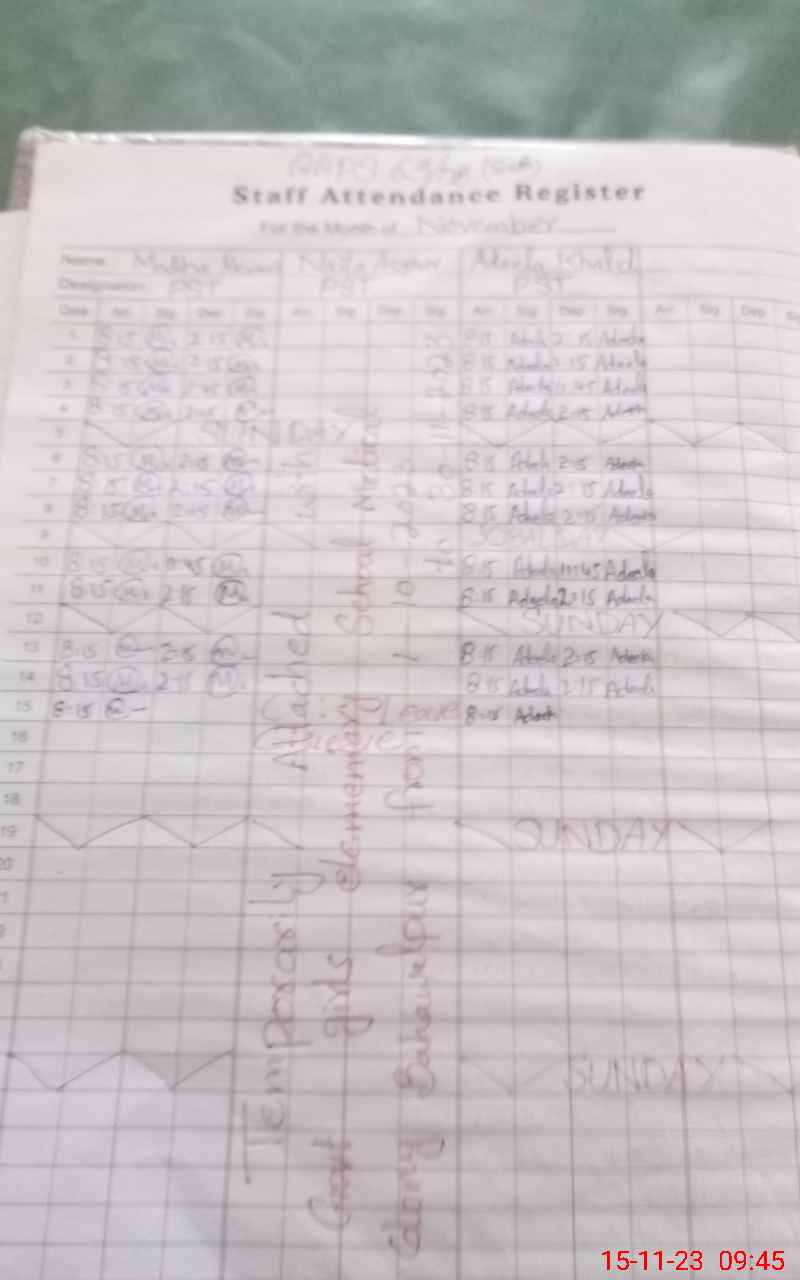 Staff Attendance Register
For the Month of November
Name Adeela Khalid
Designation PST PST PST
Date Arr. Sig. Dep. Sig. Arr. Sig. Dep. Sig. Arr. Sig. Dep. Sig. Arr. Sig. Dep.
1 8:15 2:15 8:15 Adeela 2:15 Adeela
2 8:15 2:15 8:15 Adeela 2:15 Adeela
3 8:15 8:15 Adeela 11:45 Adeela
4 8:15 2:15 8:15 Adeela 2:15 Adeela
5 SUNDAY
6 8:15 2:15 8:15 Adeela 2:15 Adeela
7 8:15 2:15 8:15 Adeela 2:15 Adeela
8 8:15 8:15 Adeela 2:15 Adeela
9 IQBAL DAY
10 8:15 11:45 8:15 Adeela 11:45 Adeela
11 8:15 2:15 8:15 Adeela 2:15 Adeela
12 SUNDAY
13 8:15 2:15 8:15 Adeela 2:15 Adeela
14 8:15 M. 2:15 M. 8:15 Adeela 2:15 Adeela
15 8:15 Leave 8:15 Adeela
16 Leave
17
18
19 SUNDAY
20
SUNDAY
Temporarily Attached with
Govt girls elementary School Medical
Colony Bahawalpur from 1-10-2023 to
15-11-23 09:45